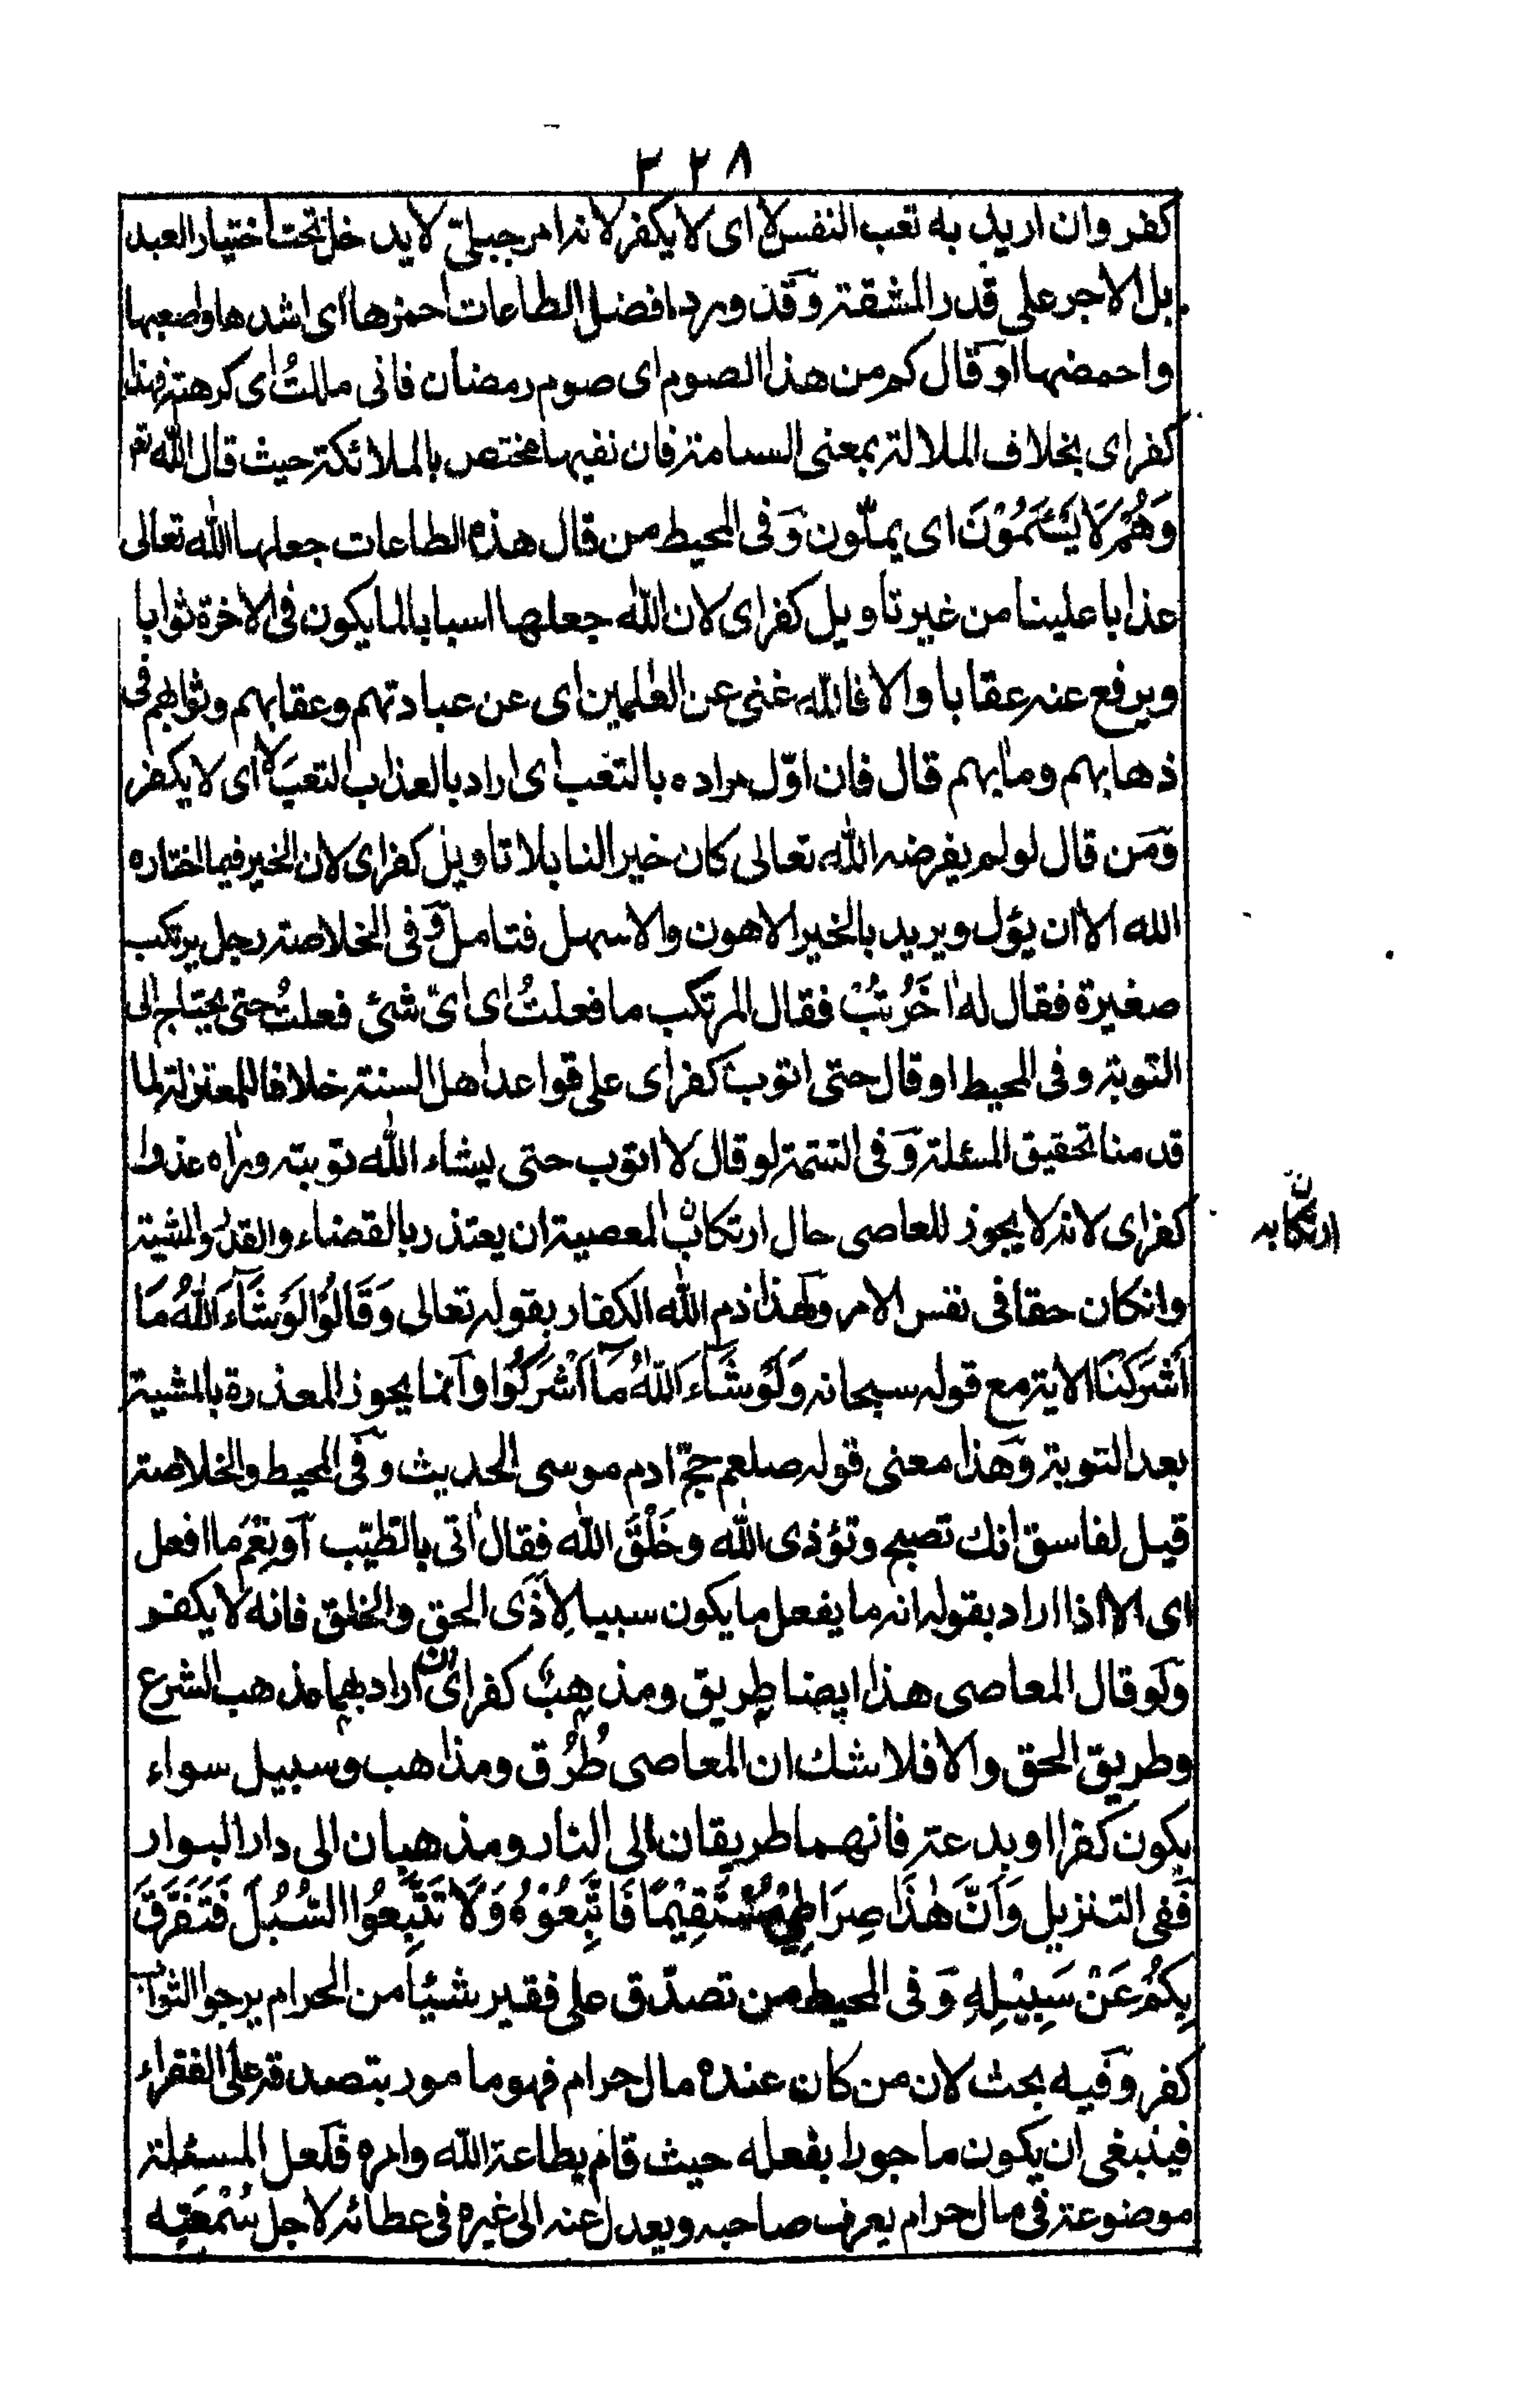 ٣٢٨
كفر وان اريد به تعب النفس لا اى لا يكفر لانه امر جبلىّ لا يدخل تحت اختيار العبد
بل الاجر على قدر المشقة وقد ورد افضل الطاعات احمزها اى اشدها واصعبها
واحمضها آو قال كم من هذا الصوم اى صوم رمضان فانى مللتُ اى كرهته فهذا
كفر اى بخلاف الملالة بمعنى السامة فان نفيها مختص بالملائكة حيث قال الله تع
وَهُمْ لَا يَسْئَمُوْنَ اى يملّون وَفى المحيط من قال هذه الطاعات جعلها الله تعالى
عذابا علينا من غير تاويل كفر اى لان الله جعلها اسبابا لما يكون فى الاخرة ثوابا
ويرفع عنه عقابا والا فالله غنى عن العٰلمين اى عن عبادتهم وعقابهم وثوابهم فى
ذهابهم ومابهم قال فان اوّل مراده بالتعب اى اراد بالعذاب التعبَ لا اى لا يكفر
وَمَن قال لو لم يفرضه الله تعالى كان خيرا لنا بلا تاويل كفر اى لان الخير فيما اختاره
الله الا ان يؤل ويريد بالخير الاهون والاسهل فتامل وَفى الخلاصة رجل يرتكب
صغيرة فقال له اٰخَرُ تُبْ فقال المرتكب ما فعلتُ اى اىّ شئ فعلتُ حتى يحتاج الى
التوبة وفى المحيط او قال حتى اتوب كفر اى على قواعد اهل السنة خلافا للمعتزلة لما
قدمنا تحقيق المسئلة وَفى التتمة لو قال لا اتوب حتى يشاء الله توبته وراٰه عذرا
كفر اى لانه لا يجوز للعاصى حال ارتكاب المعصية ان يعتذر بالقضاء والقدر والمشية
وانكان حقا فى نفس الامر ولهٰذا ذم الله الكفار بقوله تعالى وَقَالُوْا لَوْ شَآءَ اللهُ مَا
اَشْرَكْنَا الاية مع قوله سبحانه وَلَوْ شَآءَ اللهُ مَآ اَشْرَكُوْا وآنما يجوز المعذرة بالمشية
بعد التوبة وَهذا معنى قوله صلعم حجّ ادم موسى الحديث وَفى المحيط والخلاصة
قيل لفاسق انك تصبح وتؤذى الله وخَلْقَ الله فقال اٰتى بالطيّب آو نِعْمَ ما افعل
اى الا اذا اراد بقوله انه ما يفعل ما يكون سببا لِاَذَى الحق والخلق فانه لا يكفر
وَلو قال المعاصى هذا ايضا طريق ومذهبٌ كفر اى ان اراد بهما مذهب الشرع
وطريق الحق والا فلا شك ان المعاصى طُرُق ومذاهب وسبيل سواء
يكون كفرا او بدعة فانهما طريقان الى النار ومذهبان الى دار البوار
فَفى التنزيل وَاَنَّ هٰذَا صِرَاطِىْ مُسْتَقِيْمًا فَاتَّبِعُوْهُ وَلَا تَتَّبِعُوا السُّبُلَ فَتَفَرَّقَ
بِكُمْ عَنْ سَبِيْلِهٖ وَفى المحيط من تصدّق على فقير شيئا من الحرام يرجوا الثواب
كفر وَفيه بحث لان من كان عنده مال حرام فهو مامور بتصدقه على الفقراء
فينبغى ان يكون ماجورا بفعله حيث قام بطاعة الله وامره فلعل المسئلة
موضوعة فى مال حرام يعرف صاحبه ويعدل عنه الى غيره فى عطائه لاجل سُمْعَتِه
ن
ارتكابه